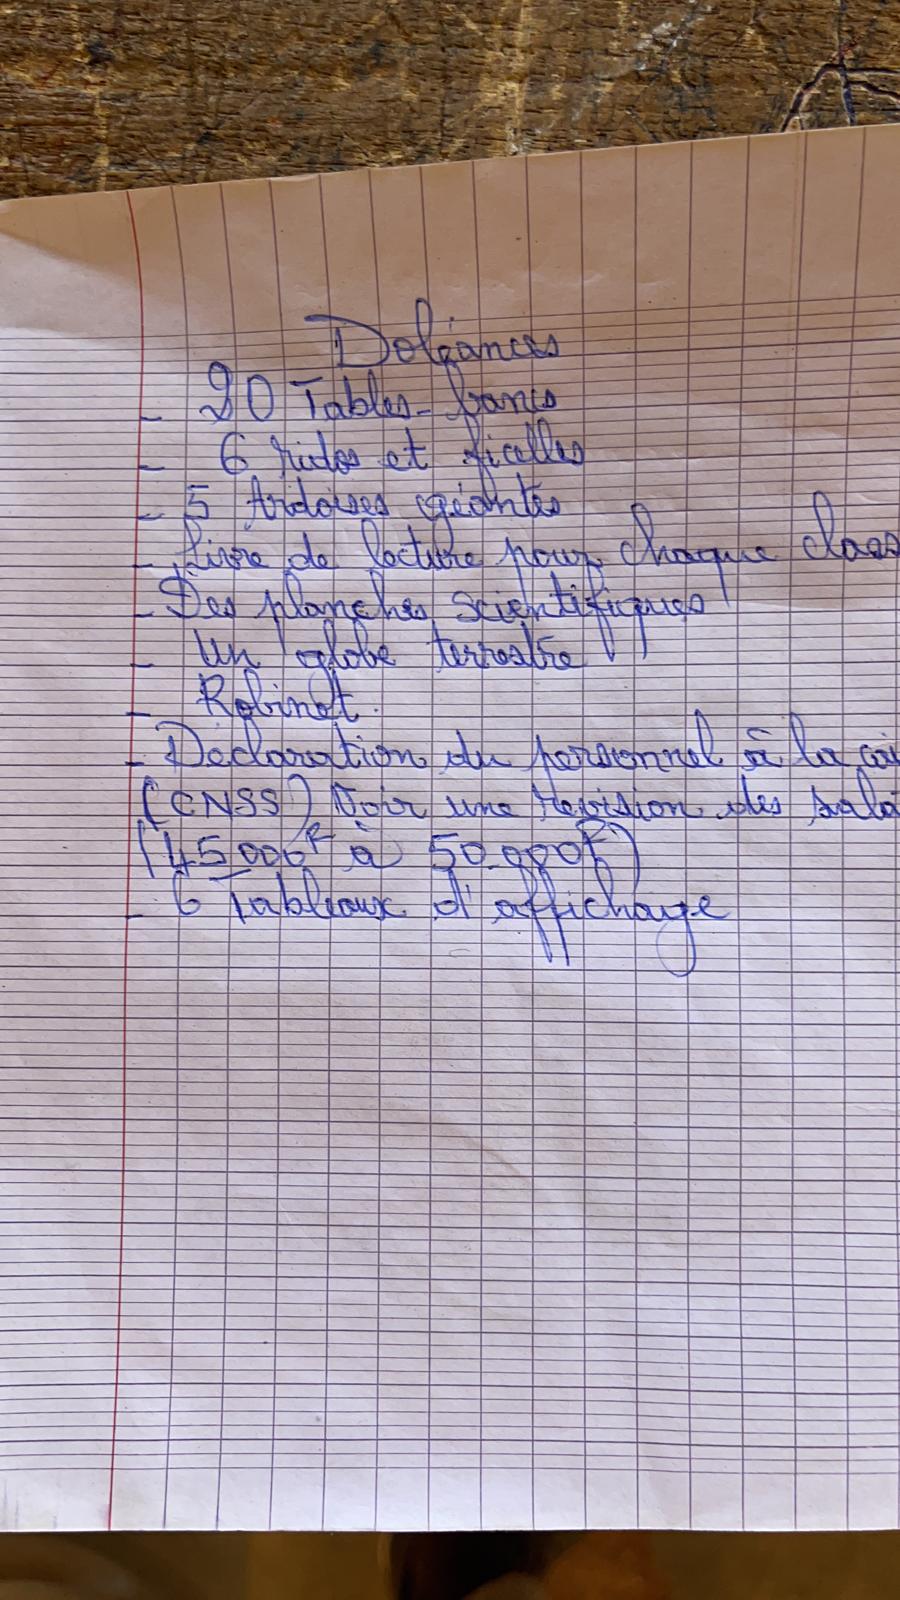 Doléances
- 20 Tables-bancs
- 6 ridos et ficelles
- 5 Ardoises géantes
- Livre de lecture pour chaque class
- Des planches scientifiques
- Un globe terrestre
- Robinet.
- Déclaration du personnel à la cai
(CNSS) Voir une révision des sala
(45000F à 50.000F)
- 6 Tableaux d'affichage